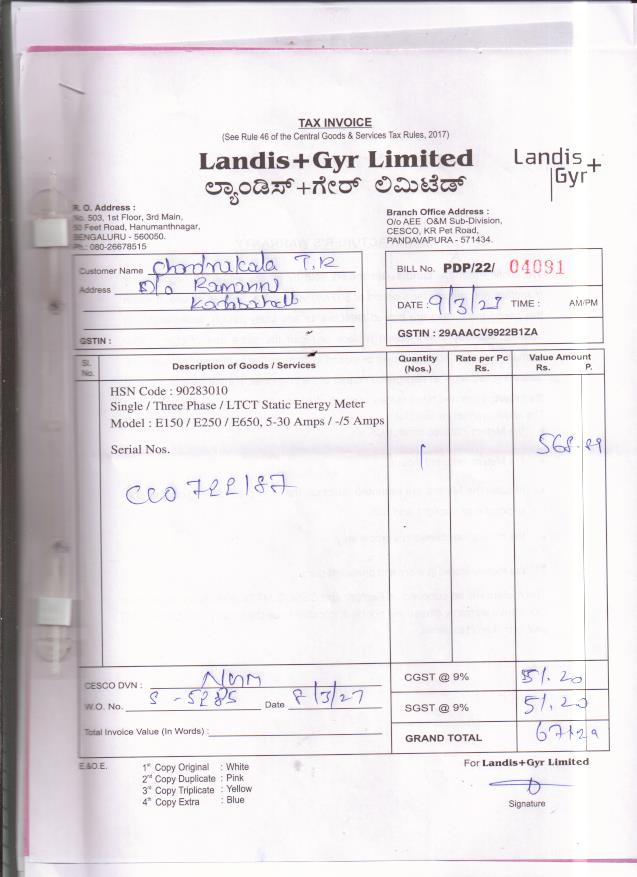 TAX INVOICE
(See Rule 46 of the Central Goods & Services Tax Rules, 2017)
Landis+Gyr Limited
ಲ್ಯಾಂಡಿಸ್+ಗೇರ್ ಲಿಮಿಟೆಡ್
Landis+
Gyr
R. O. Address :
No. 503, 1st Floor, 3rd Main,
50 Feet Road, Hanumanthnagar,
BENGALURU - 560050.
Ph.: 080-26678515
Branch Office Address :
O/o AEE O&M Sub-Division,
CESCO, KR Pet Road,
PANDAVAPURA - 571434.
Customer Name Chandrakala T.R
Address D/o Ramanna
GSTIN :
BILL No. PDP/22/ 04091
DATE : 9/3/23 TIME : AM/PM
GSTIN : 29AAACV9922B1ZA
Sl. No. Description of Goods / Services Quantity (Nos.) Rate per Pc Rs. Value Amount Rs. P.
HSN Code : 90283010
Single / Three Phase / LTCT Static Energy Meter
Model : E150 / E250 / E650, 5-30 Amps / -/5 Amps
Serial Nos. 1 568.89
CCO 722187
CESCO DVN :
W.O. No. S-5285 Date
Total Invoice Value (In Words) :
CGST @ 9% 51.20
SGST @ 9% 51.20
GRAND TOTAL 671.29
E.&.O.E.
1st Copy Original : White
2nd Copy Duplicate : Pink
3rd Copy Triplicate : Yellow
4th Copy Extra : Blue
For Landis+Gyr Limited
Signature